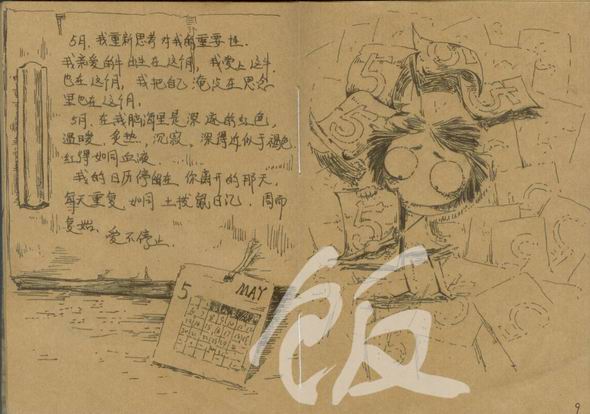 5月，我重新思考对我的重要性。
我亲爱的牛出生在这个月，我爱上这牛
也在这个月，我把自己淹没在思念
里也在这个月。
5月，在我脑海里是深邃的红色，
温暖，炙热，沉寂，深得近似于褐色
红得如同血液。
我的日历停留在你离开的那天，
每天重复，如同土拨鼠日记，周而
复始。爱不停止
5 MAY
5
5
5
5
5
饭
9